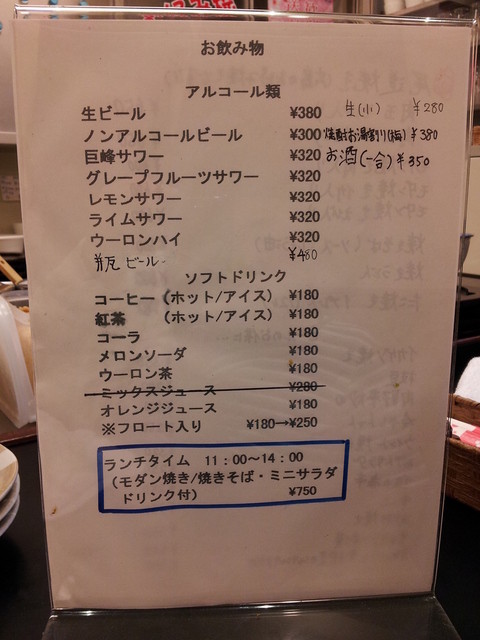 お飲み物
アルコール類
生ビール ¥380 生(小) ¥280
ノンアルコールビール ¥300 焼酎お湯割り(梅) ¥380
巨峰サワー ¥320 お酒(一合) ¥350
グレープフルーツサワー ¥320
レモンサワー ¥320
ライムサワー ¥320
ウーロンハイ ¥320
瓶ビール ¥480
ソフトドリンク
コーヒー(ホット/アイス) ¥180
紅茶 (ホット/アイス) ¥180
コーラ ¥180
メロンソーダ ¥180
ウーロン茶 ¥180
ミックスジュース ¥280
オレンジジュース ¥180
※フロート入り ¥180→¥250
ランチタイム 11:00～14:00
(モダン焼き/焼きそば・ミニサラダ
ドリンク付) ¥750